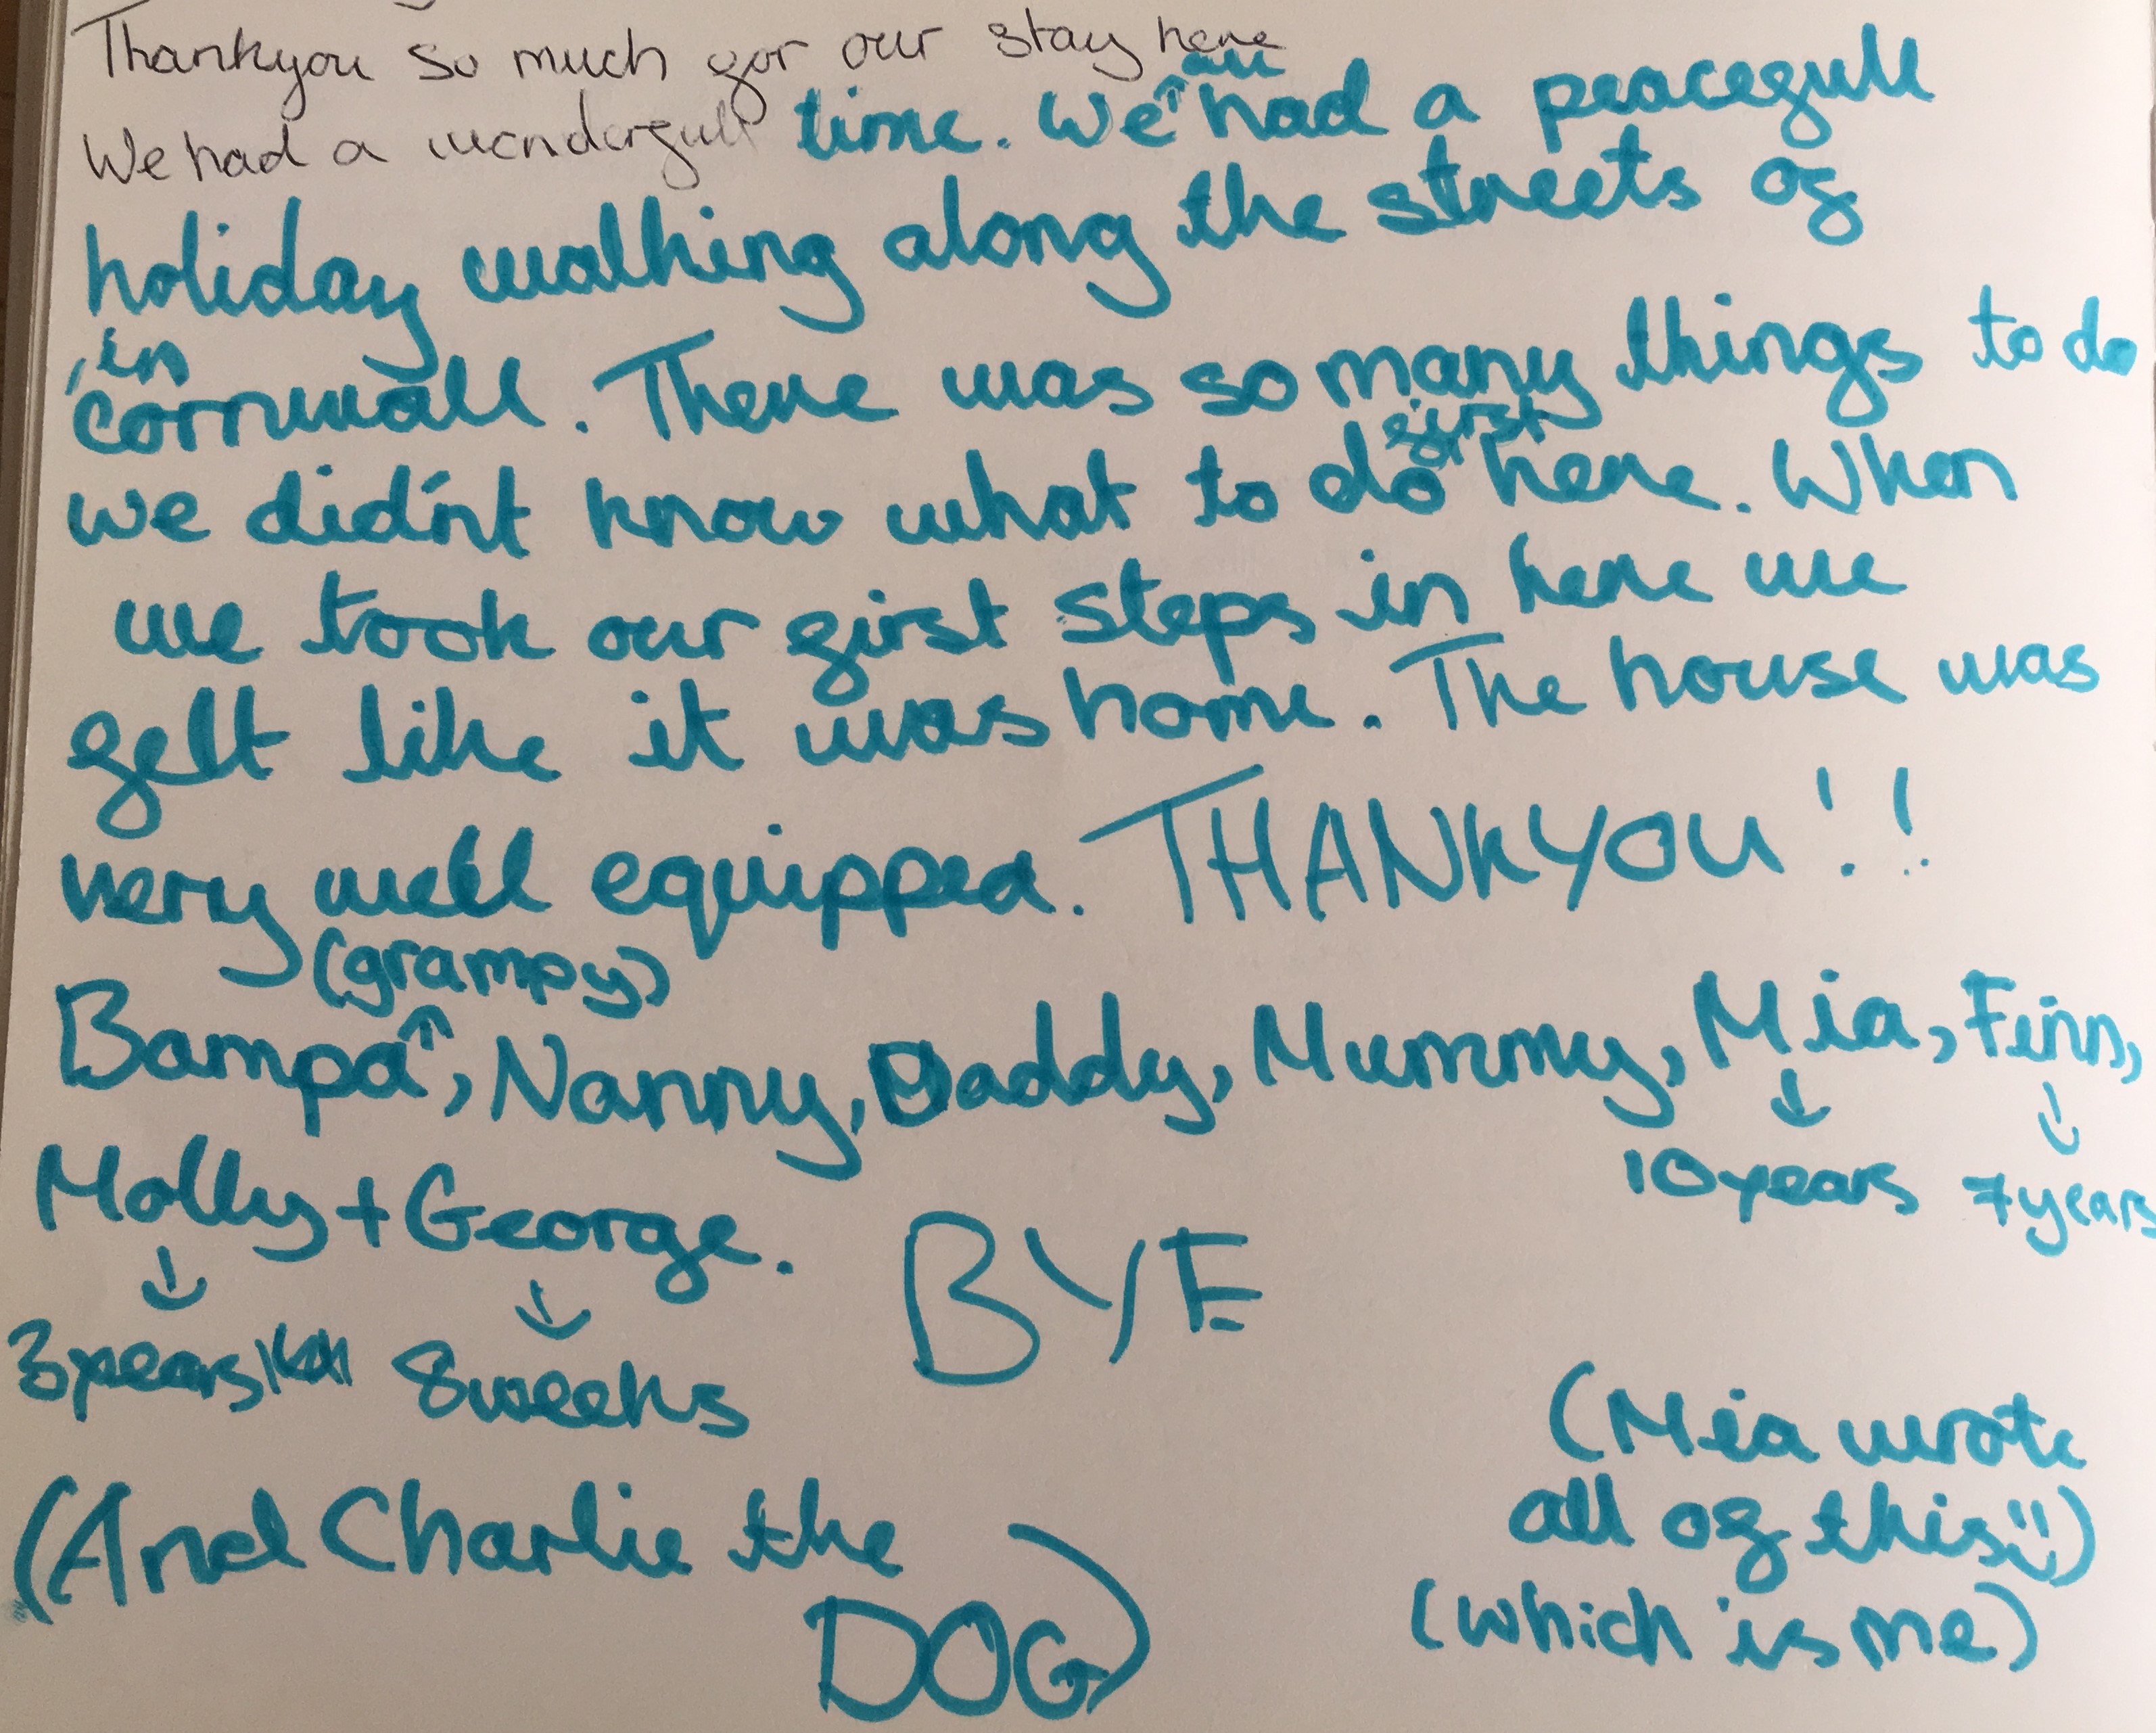 Thankyou so much for our stay here
We had a wonderfull time. We all had a peacefull
holiday walking along the streets of
, in cornwall. There was so many things to do
we did'nt know what to do first here. When
we took our first steps in here we
felt like it was home. The house was
very well equipped. THANKYOU!!
(grampy)
Bampa, Nanny, Daddy, Mummy, Mia, Finn,
10years 7years
Molly + George.
BYE
3years 8weeks
(Mia wrote
all of this)
(which is me)
(And Charlie the
DOG)